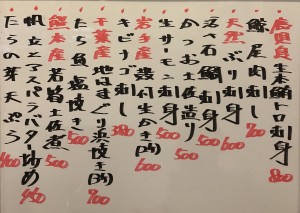 鹿児島産本鮪トロ刺身 800
鯨尾肉刺し 700
天然ぶり刺身 600
活〆石鯛刺身 500
かつお土佐造り 500
生サーモン刺身 500
岩手産殻付生かき(1ヶ) 600
キビナゴ刺し 380
千葉産地はまぐり浜焼き(1ヶ) 700
たら魚塩焼き 500
熊本産若筍土佐煮 500
帆立とアスパラバター炒め 450
たらの芽天ぷら 400